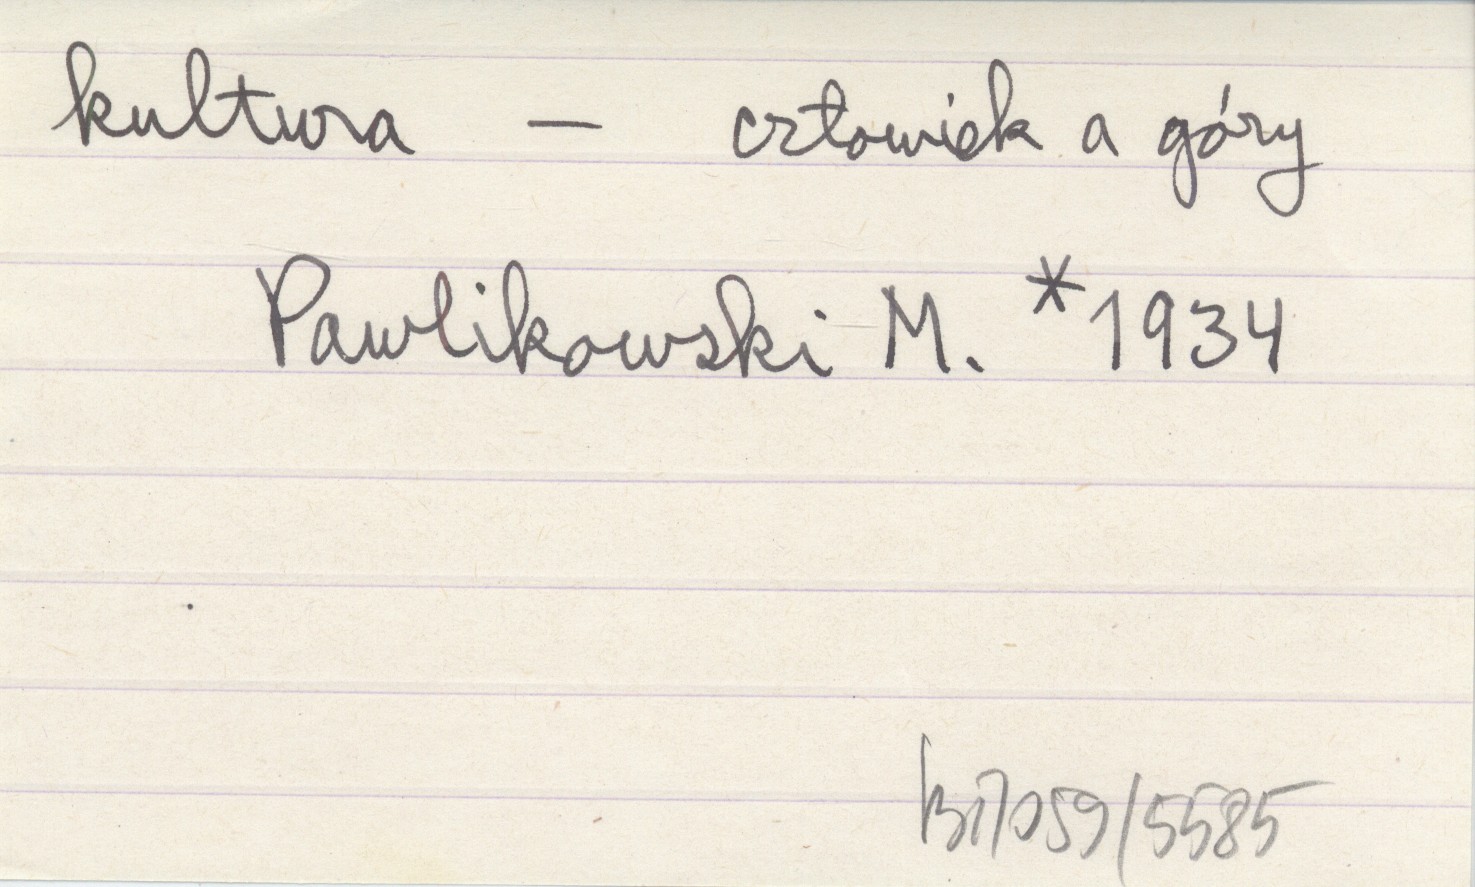 kultura – człowiek a góry
Pawlikowski M. *1934